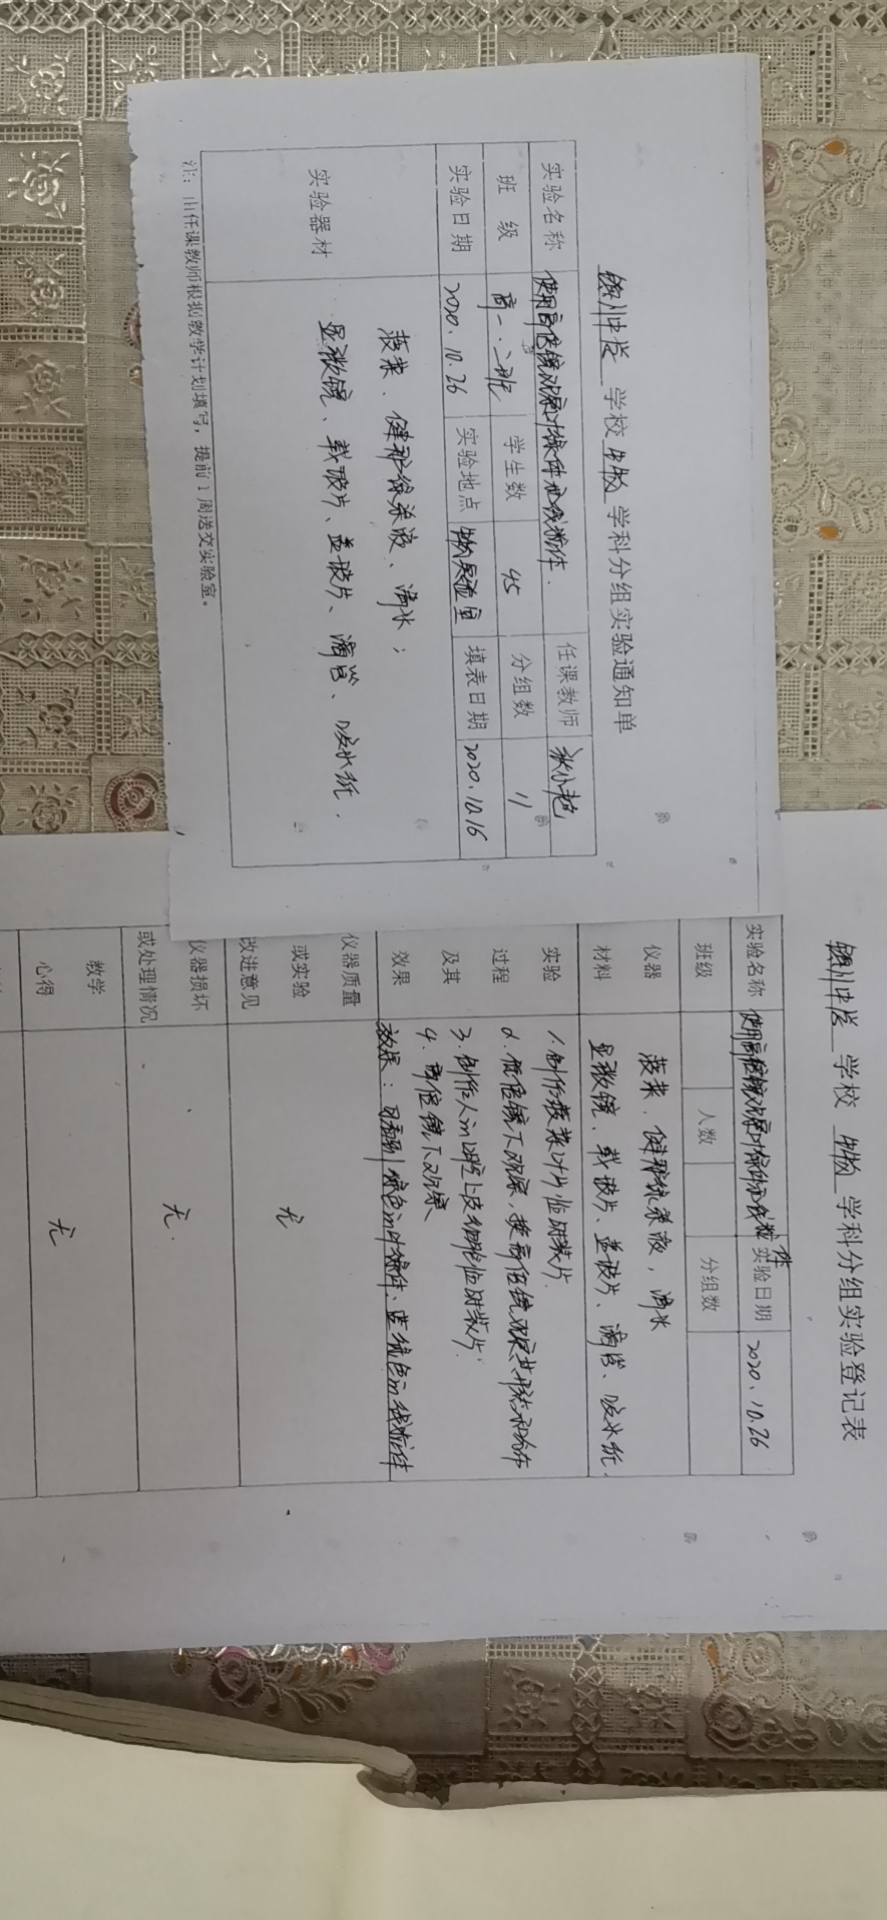 银川中学 学校 生物 学科分组实验通知单
实验名称 使用高倍镜观察叶绿体和线粒体. 任课教师
班 级 高一.二班 学生数 45 分组数 11
实验日期 2020.10.26 实验地点 生物实验室 填表日期 2020.10.16
实验器材
菠菜、健那绿染液、清水;
显微镜、载玻片、盖玻片、滴管、吸水纸.
注:由任课教师根据教学计划填写,提前1周送交实验室。
银川中学 学校 生物 学科分组实验登记表
实验名称 使用高倍镜观察叶绿体和线粒体 实验日期 2020.10.26
班级 人数 分组数
仪器 材料
菠菜、健那绿染液,清水
显微镜、载玻片、盖玻片、滴管、吸水纸.
实验 过程 及其 效果
1.制作菠菜叶片临时装片.
2.低倍镜下观察,换高倍镜观察其形态和分布
3.制作人的口腔上皮细胞临时装片.
4.高倍镜下观察
效果:可看到绿色的叶绿体、蓝绿色的线粒体
仪器质量 或实验 改进意见 无
仪器损坏 或处理情况 无.
教学 心得 无